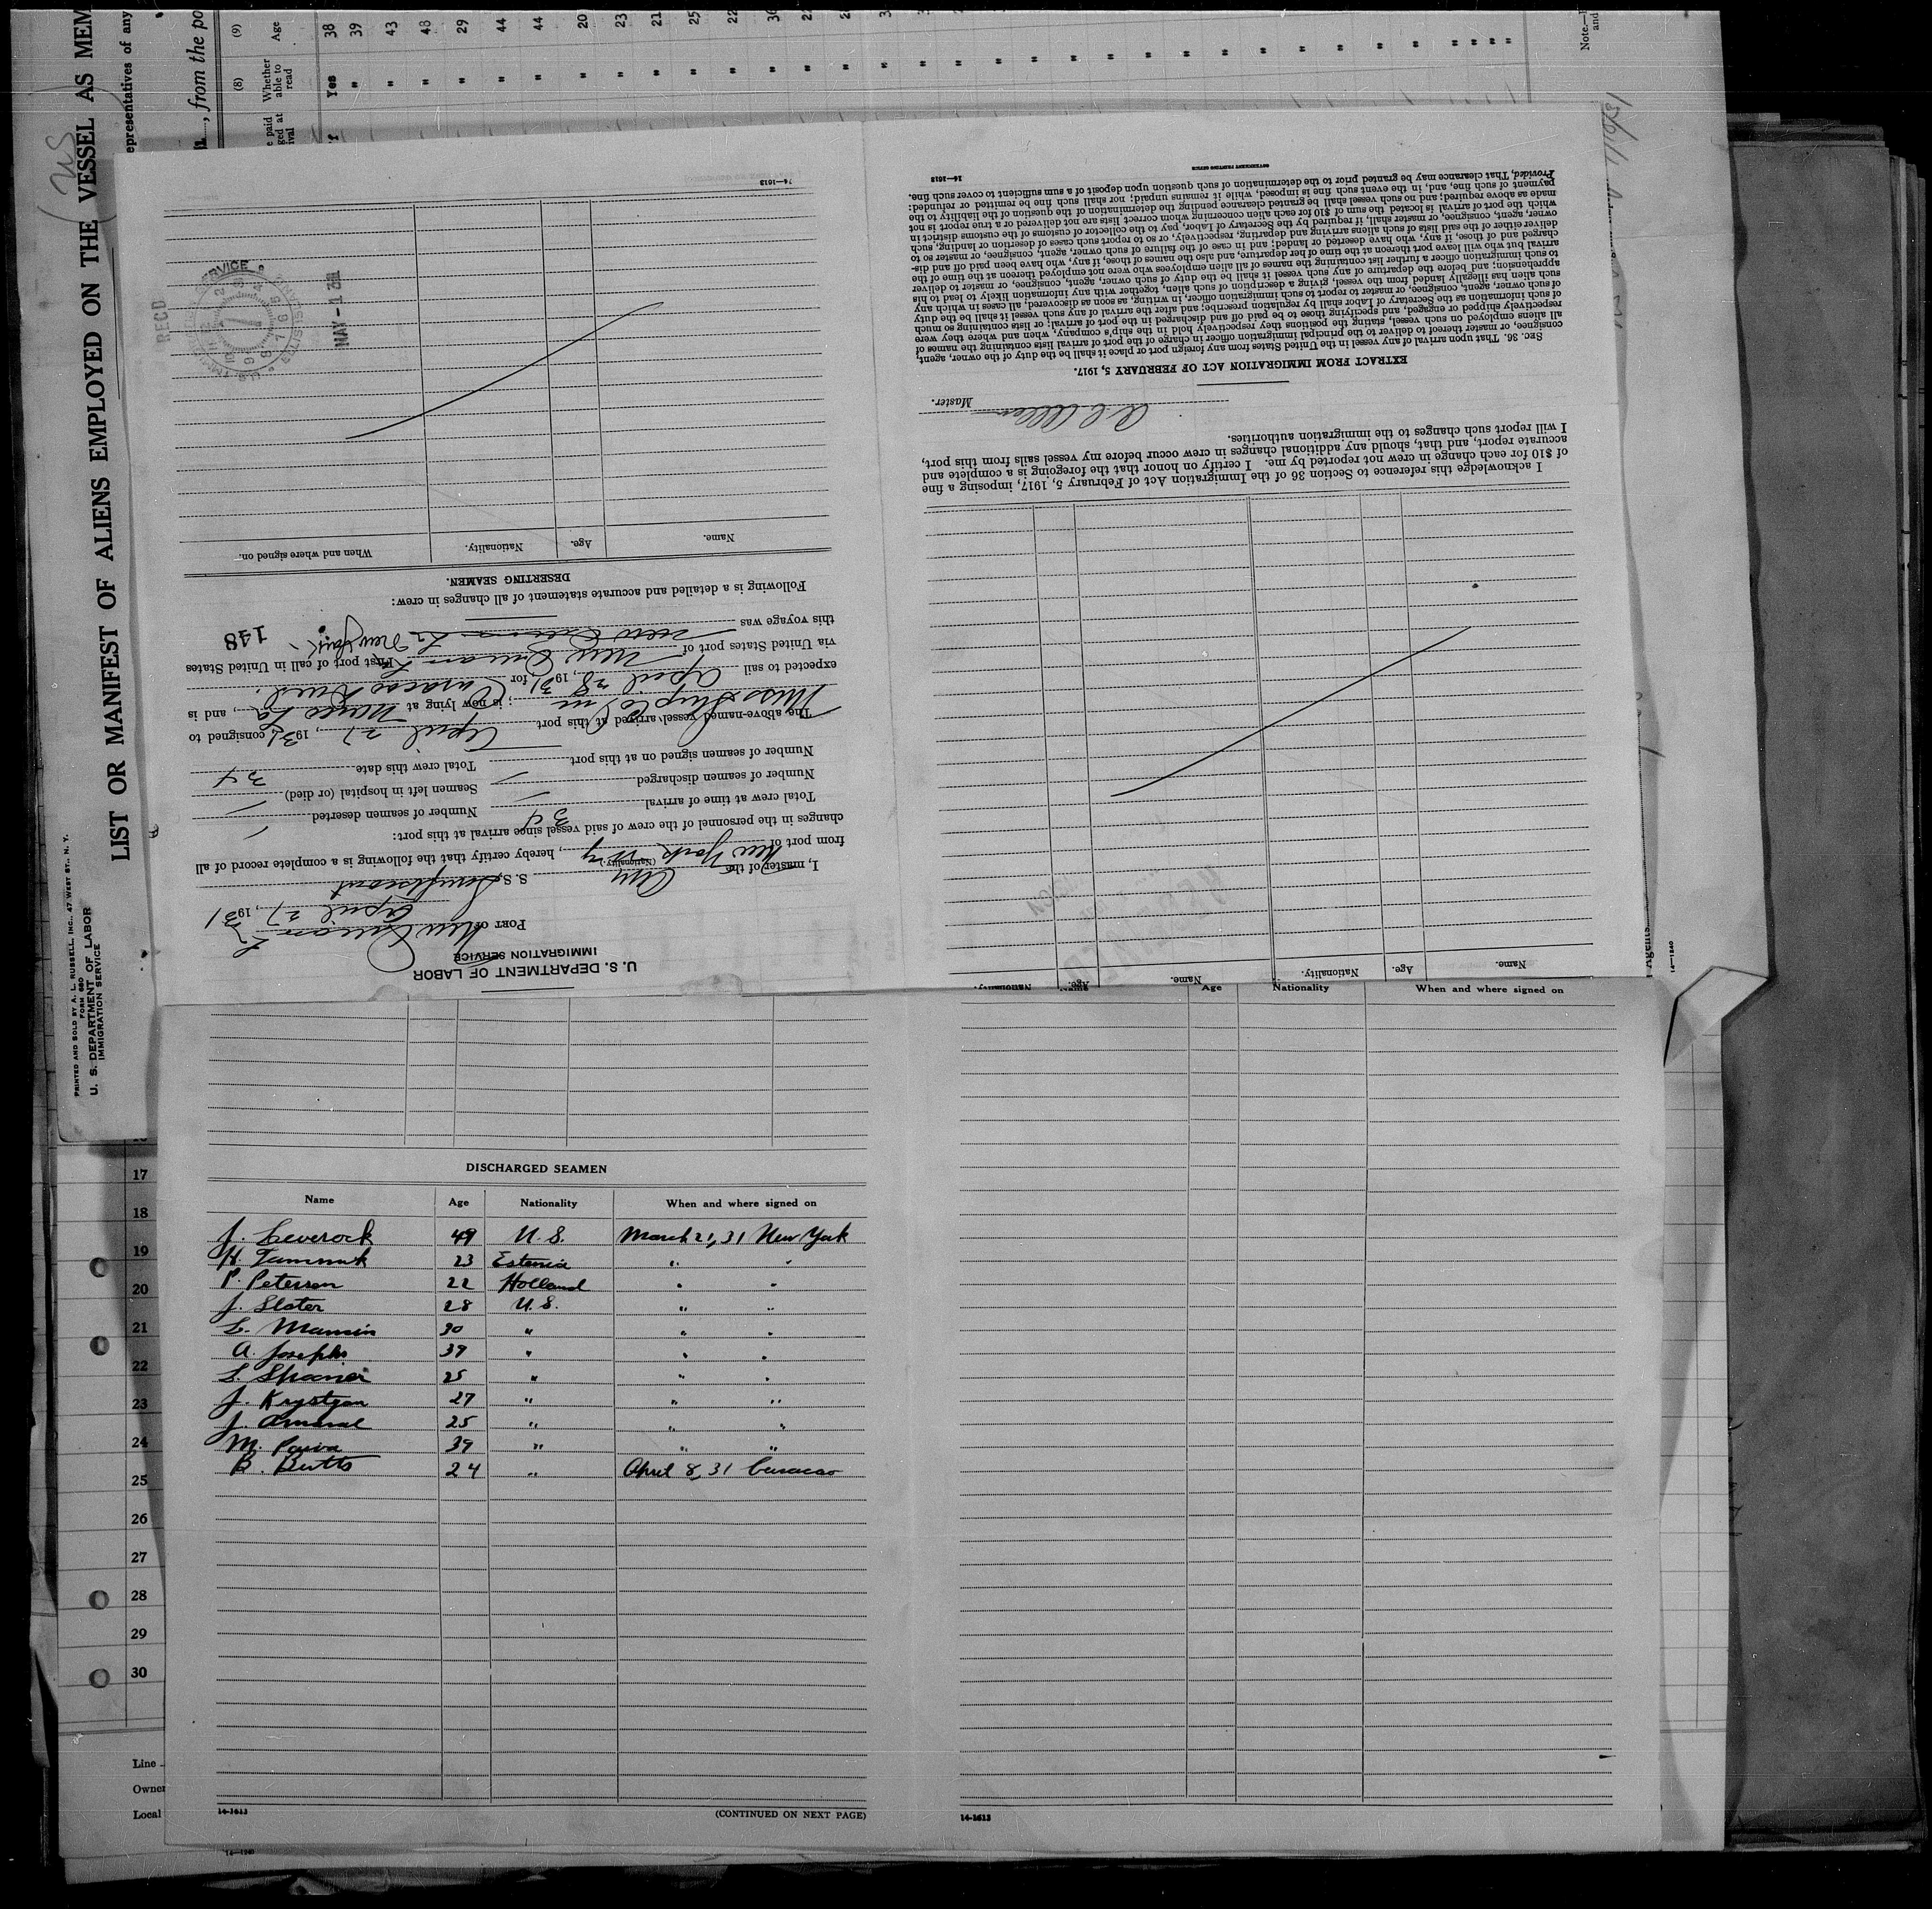 LIST OR MANIFEST OF ALIENS EMPLOYED ON THE VESSEL AS MEM
epresentatives of any
, from the po
PRINTED AND SOLD BY A. L. RUSSELL, INC., 47 WEST ST., N. Y.
FORM 680
U. S. DEPARTMENT OF LABOR
IMMIGRATION SERVICE
(US)
(9)
Age
38
39
43
48
29
44
44
20
23
21
25
22
(8)
Whether able to read
Yes
Note.—
and
U. S. DEPARTMENT OF LABOR
IMMIGRATION SERVICE
PORT OF New Orleans La
April 27, 1931
I, master of the Am S. S.
(Nationality.)
from port of New York NY, hereby certify that the following is a complete record of all
changes in the personnel of the crew of said vessel since arrival at this port:
Total crew at time of arrival 34 Number of seamen deserted /
Number of seamen discharged / Seamen left in hospital (or died) /
Number of seamen signed on at this port Total crew this date 34
The above-named vessel arrived at this port April 27, 1931 consigned to
Miss Ship Co Inc; is now lying at, and is
expected to sail April 28, 1931, for Curacao
via United States port of New Orleans La First port of call in United States
this voyage was New Orleans La New York
148
Following is a detailed and accurate statement of all changes in crew:
DESERTING SEAMEN.
Name. Age. Nationality. When and where signed on.
RECD
MAY -1 1931
14—1613
Name. Age. Nationality. Name. Age. Nationality.
I acknowledge this reference to Section 36 of the Immigration Act of February 5, 1917, imposing a fine
of $10 for each change in crew not reported by me. I certify on honor that the foregoing is a complete and
accurate report, and that, should any additional changes in crew occur before my vessel sails from this port,
I will report such changes to the immigration authorities.
Master.
EXTRACT FROM IMMIGRATION ACT OF FEBRUARY 5, 1917.
SEC. 36. That upon arrival of any vessel in the United States from any foreign port or place it shall be the duty of the owner, agent,
consignee, or master thereof to deliver to the principal immigration officer in charge of the port of arrival lists containing the names of
all aliens employed on such vessel, stating the positions they respectively hold in the ship's company, when and where they were
respectively shipped or engaged, and specifying those to be paid off and discharged in the port of arrival; or lists containing so much
of such information as the Secretary of Labor shall by regulation prescribe; and after the arrival of any such vessel it shall be the duty
of such owner, agent, consignee, or master to report to such immigration officer, in writing, as soon as discovered, all cases in which any
such alien has illegally landed from the vessel, giving a description of such alien, together with any information likely to lead to his
apprehension; and before the departure of any such vessel it shall be the duty of such owner, agent, consignee, or master to deliver
to such immigration officer a further list containing the names of all alien employees who were not employed thereon at the time of the
arrival but who will leave port thereon at the time of her departure, and also the names of those, if any, who have been paid off and dis-
charged and of those, if any, who have deserted or landed; and in case of the failure of such owner, agent, consignee, or master so to
deliver either of the said lists of such aliens arriving and departing, respectively, or so to report such cases of desertion or landing, such
owner, agent, consignee, or master shall, if required by the Secretary of Labor, pay to the collector of customs of the customs district in
which the port of arrival is located the sum of $10 for each alien concerning whom correct lists are not delivered or a true report is not
made as above required; and no such vessel shall be granted clearance pending the determination of the question of the liability to the
payment of such fine, and, in the event such fine is imposed, while it remains unpaid; nor shall such fine be remitted or refunded:
Provided, That clearance may be granted prior to the determination of such question upon deposit of a sum sufficient to cover such fine.
14—1613
GOVERNMENT PRINTING OFFICE
Agents
14—1240
Age Nationality When and where signed on
DISCHARGED SEAMEN
Name Age Nationality When and where signed on
J. Leverock 49 U.S. March 21, 31 New York
23 Estonia " "
P. Peterson 22 Holland " "
J. Slater 28 U.S. " "
30 " " "
A. Josephs 39 " " "
25 " " "
J. Krystyan 27 " " "
J. Amaral 25 " " "
M. Paiva 39 " " "
B. Butts 24 " April 8, 31 Curacao
17
18
19
20
21
22
23
24
25
26
27
28
29
30
Line
Owner
Local
14-1613
(CONTINUED ON NEXT PAGE)
14-1613
14—1240